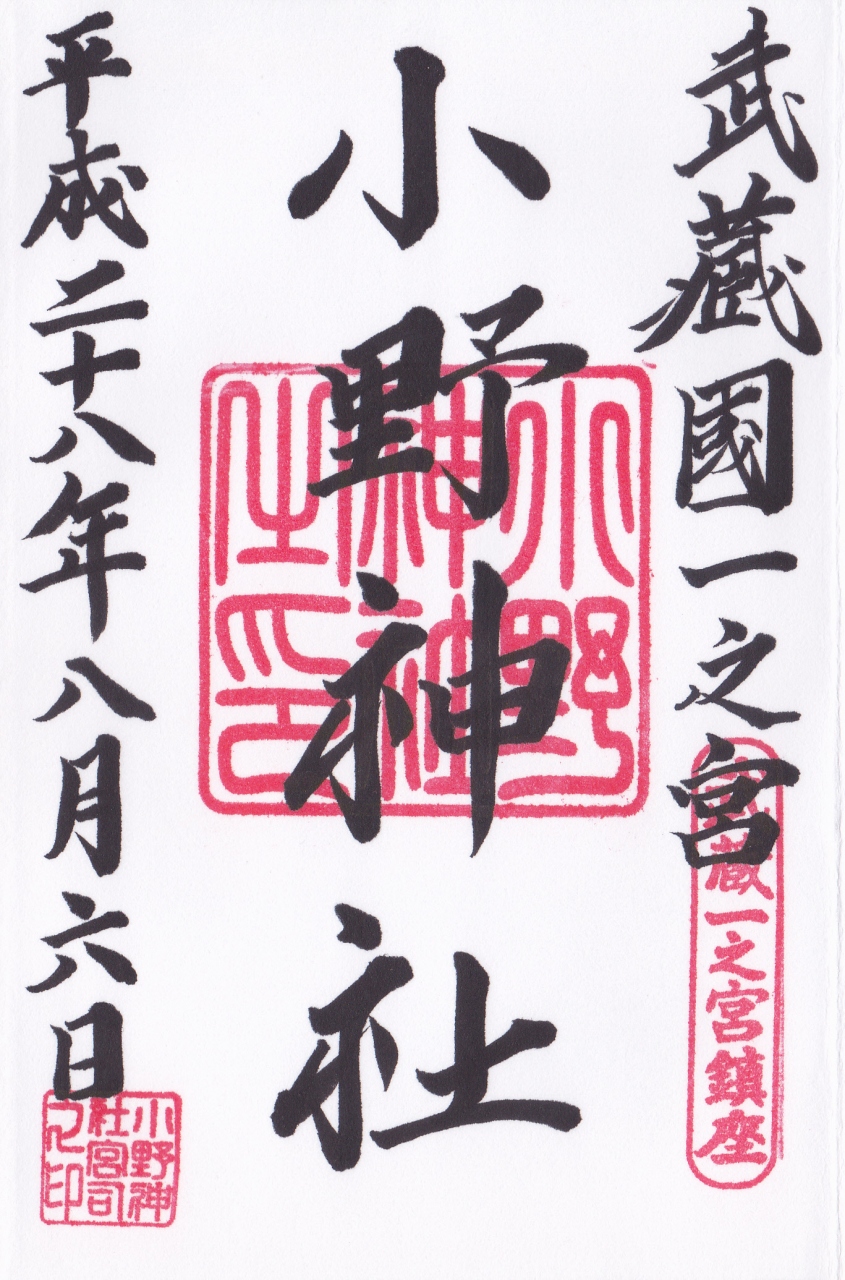 武藏國一之宮
武蔵一之宮鎮座
小野神社
小野
神社
之印
平成二十八年八月六日
小野神
社宮司
之印